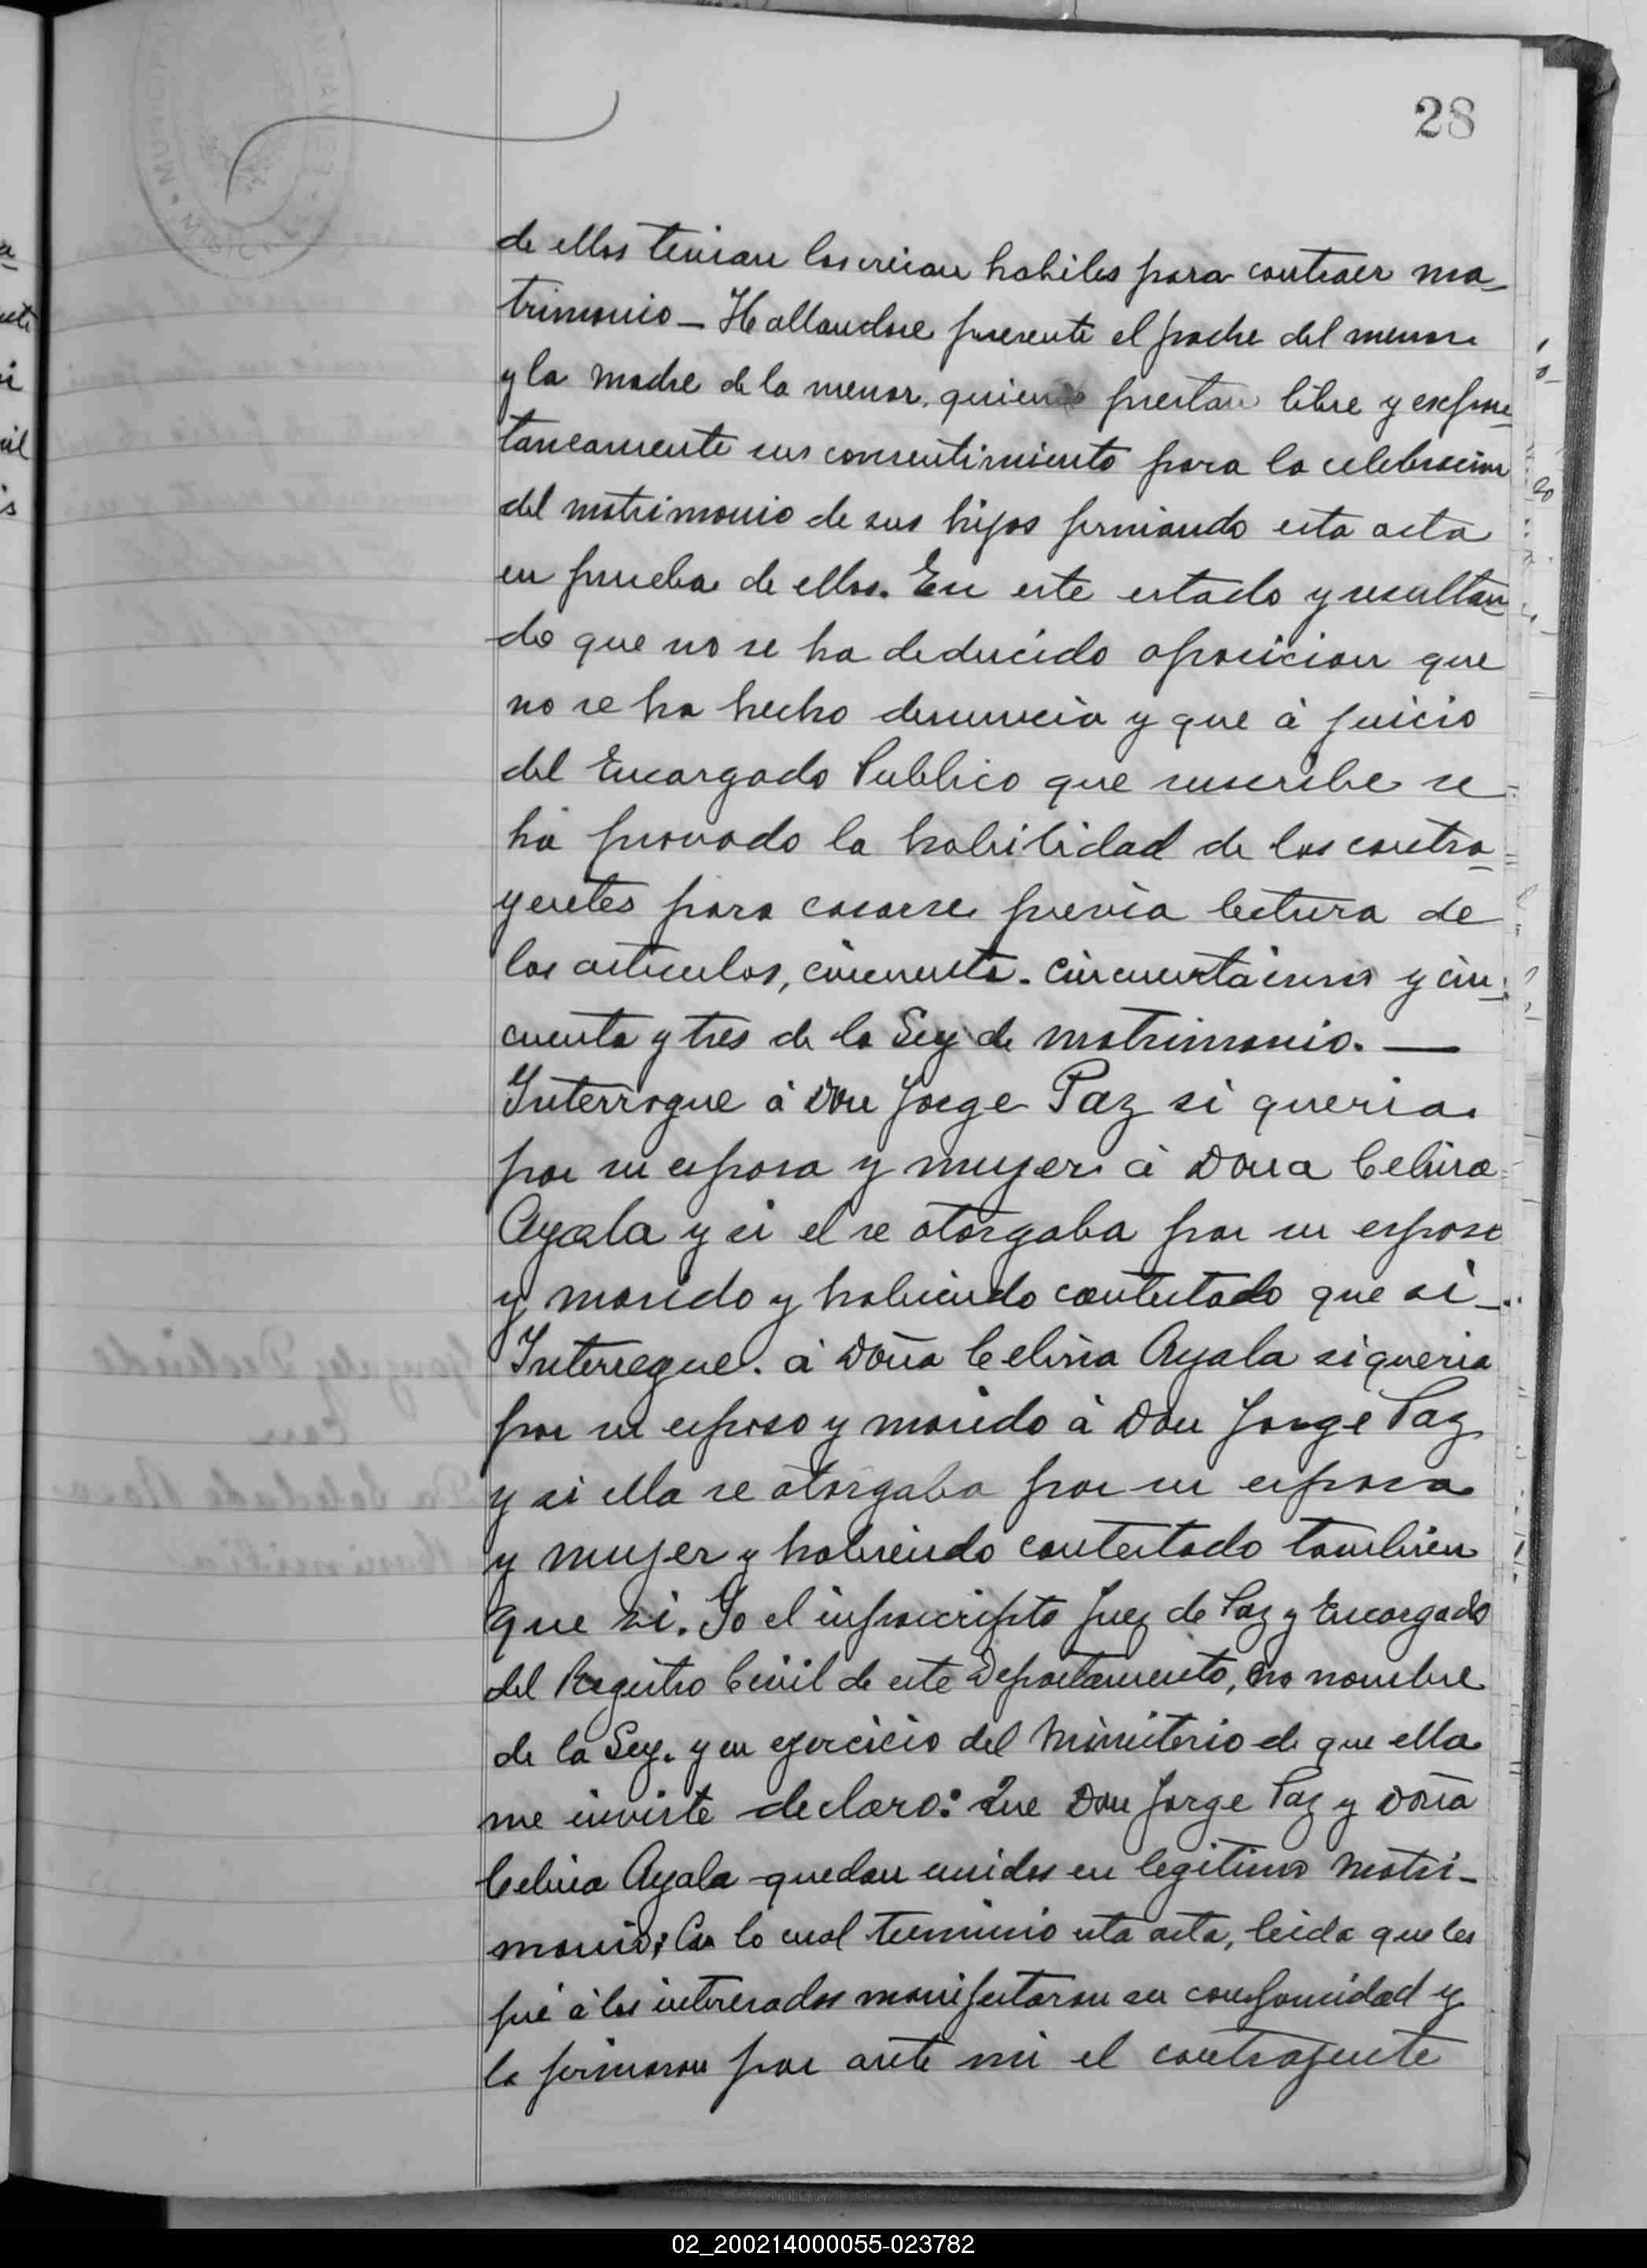 28
de ellos tenian los creian habiles para contraer ma-
trimonio - Hallandose presente el padre del menor
y la madre de la menor. quienes prestan libre y espon-
taneamente sus consentimiento para la celebracion
del matrimonio de sus hijos firmando esta acta
en prueba de ellos. En este estado y resultan
do que no se ha deducido oposicion que
no se ha hecho denuncia y que á juicio
del Encargado Publico que suscribe se
há provado la habilidad de los contra-
yentes para casarse previa lectura de
los articulos, cincuenta. cincuentaiuno y cin-
cuenta y tres de la Ley de matrimonio. —
Interrogue á Don Jorge Paz si queria
por su esposa y mujer á Dona Celina
Ayala y si el se otorgaba por su esposo
y marido y habiendo contestado que si -
Interregue. á Doña Celina Ayala si queria
por su esposo y marido á Don Jorge Paz
y si ella se otorgaba por su esposa
y mujer y habiendo contestado tambien
que si. Yo el infrascripto Juez de Paz y Encargado
del Registro Civil de este Departamento, en nombre
de la Ley. y en ejercicio del Ministerio de que ella
me inviste declaro: Que Don Jorge Paz y Doña
Celina Ayala quedan unidos en legitimo Matri-
monio; Con lo cual termino esta acta, leida que les
fué á los interesados manifestaron su conformidad y
la firmaron por ante mi el contrayente
02_200214000055-023782